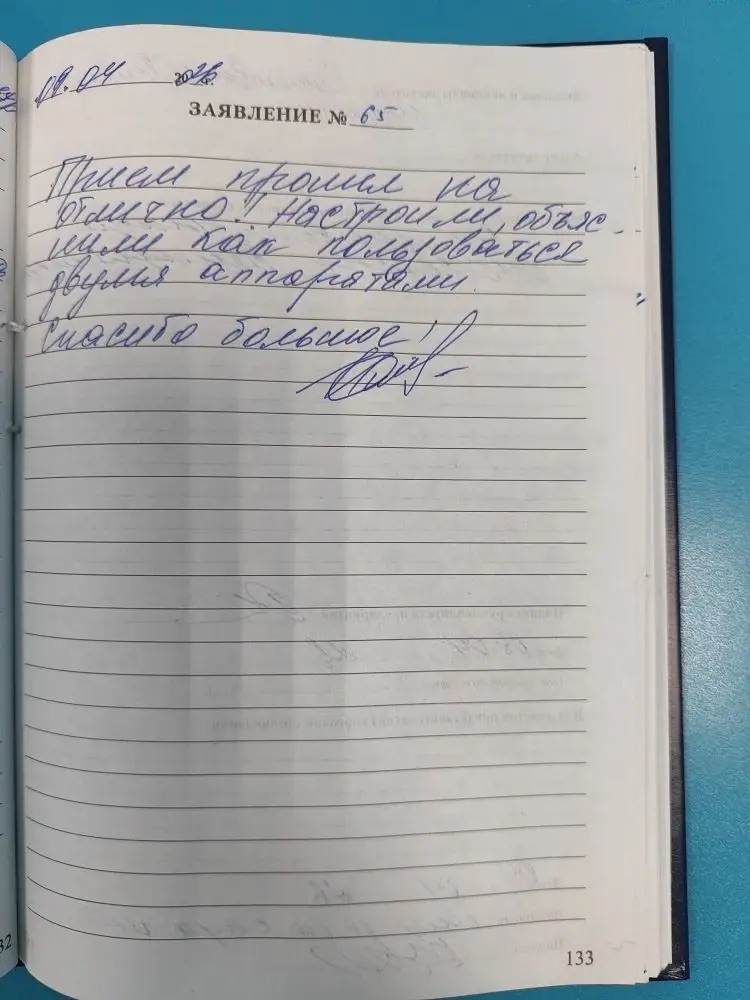 09.04 2026г.
ЗАЯВЛЕНИЕ № 65
Прием прошел на
отлично! Настроили, объяс-
нили как пользоваться
двумя аппаратами.
Спасибо большое!
133